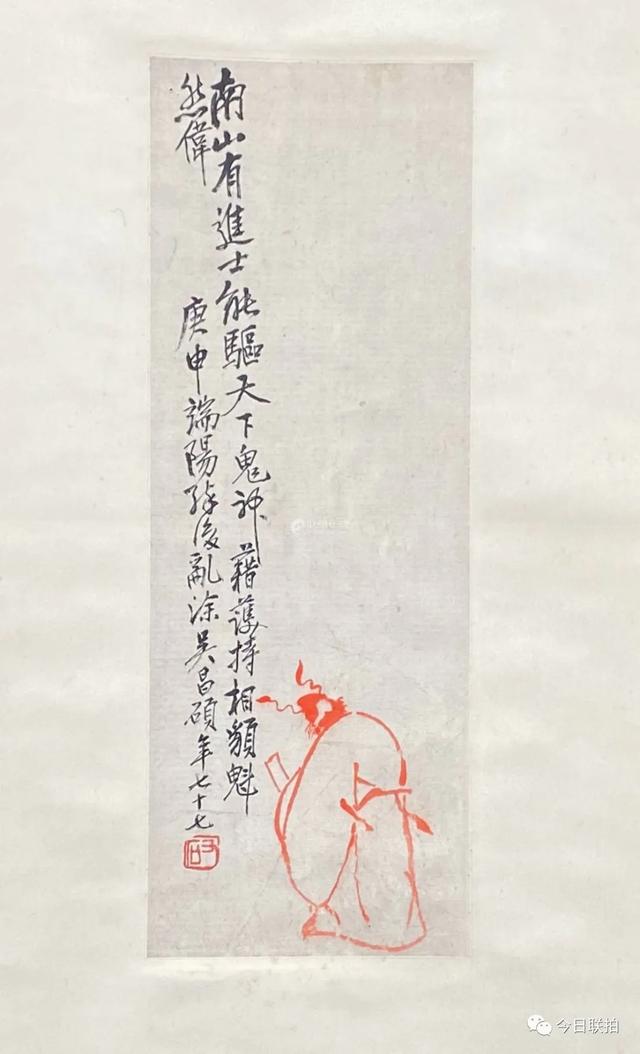 南山有進士能驅天下鬼神藉護持相貌魁
然偉
庚申端陽醉後亂涂吳昌碩年七十七
今日联拍